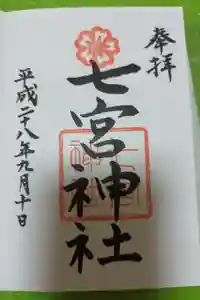 奉拝
七宮神社
平成二十八年九月十日